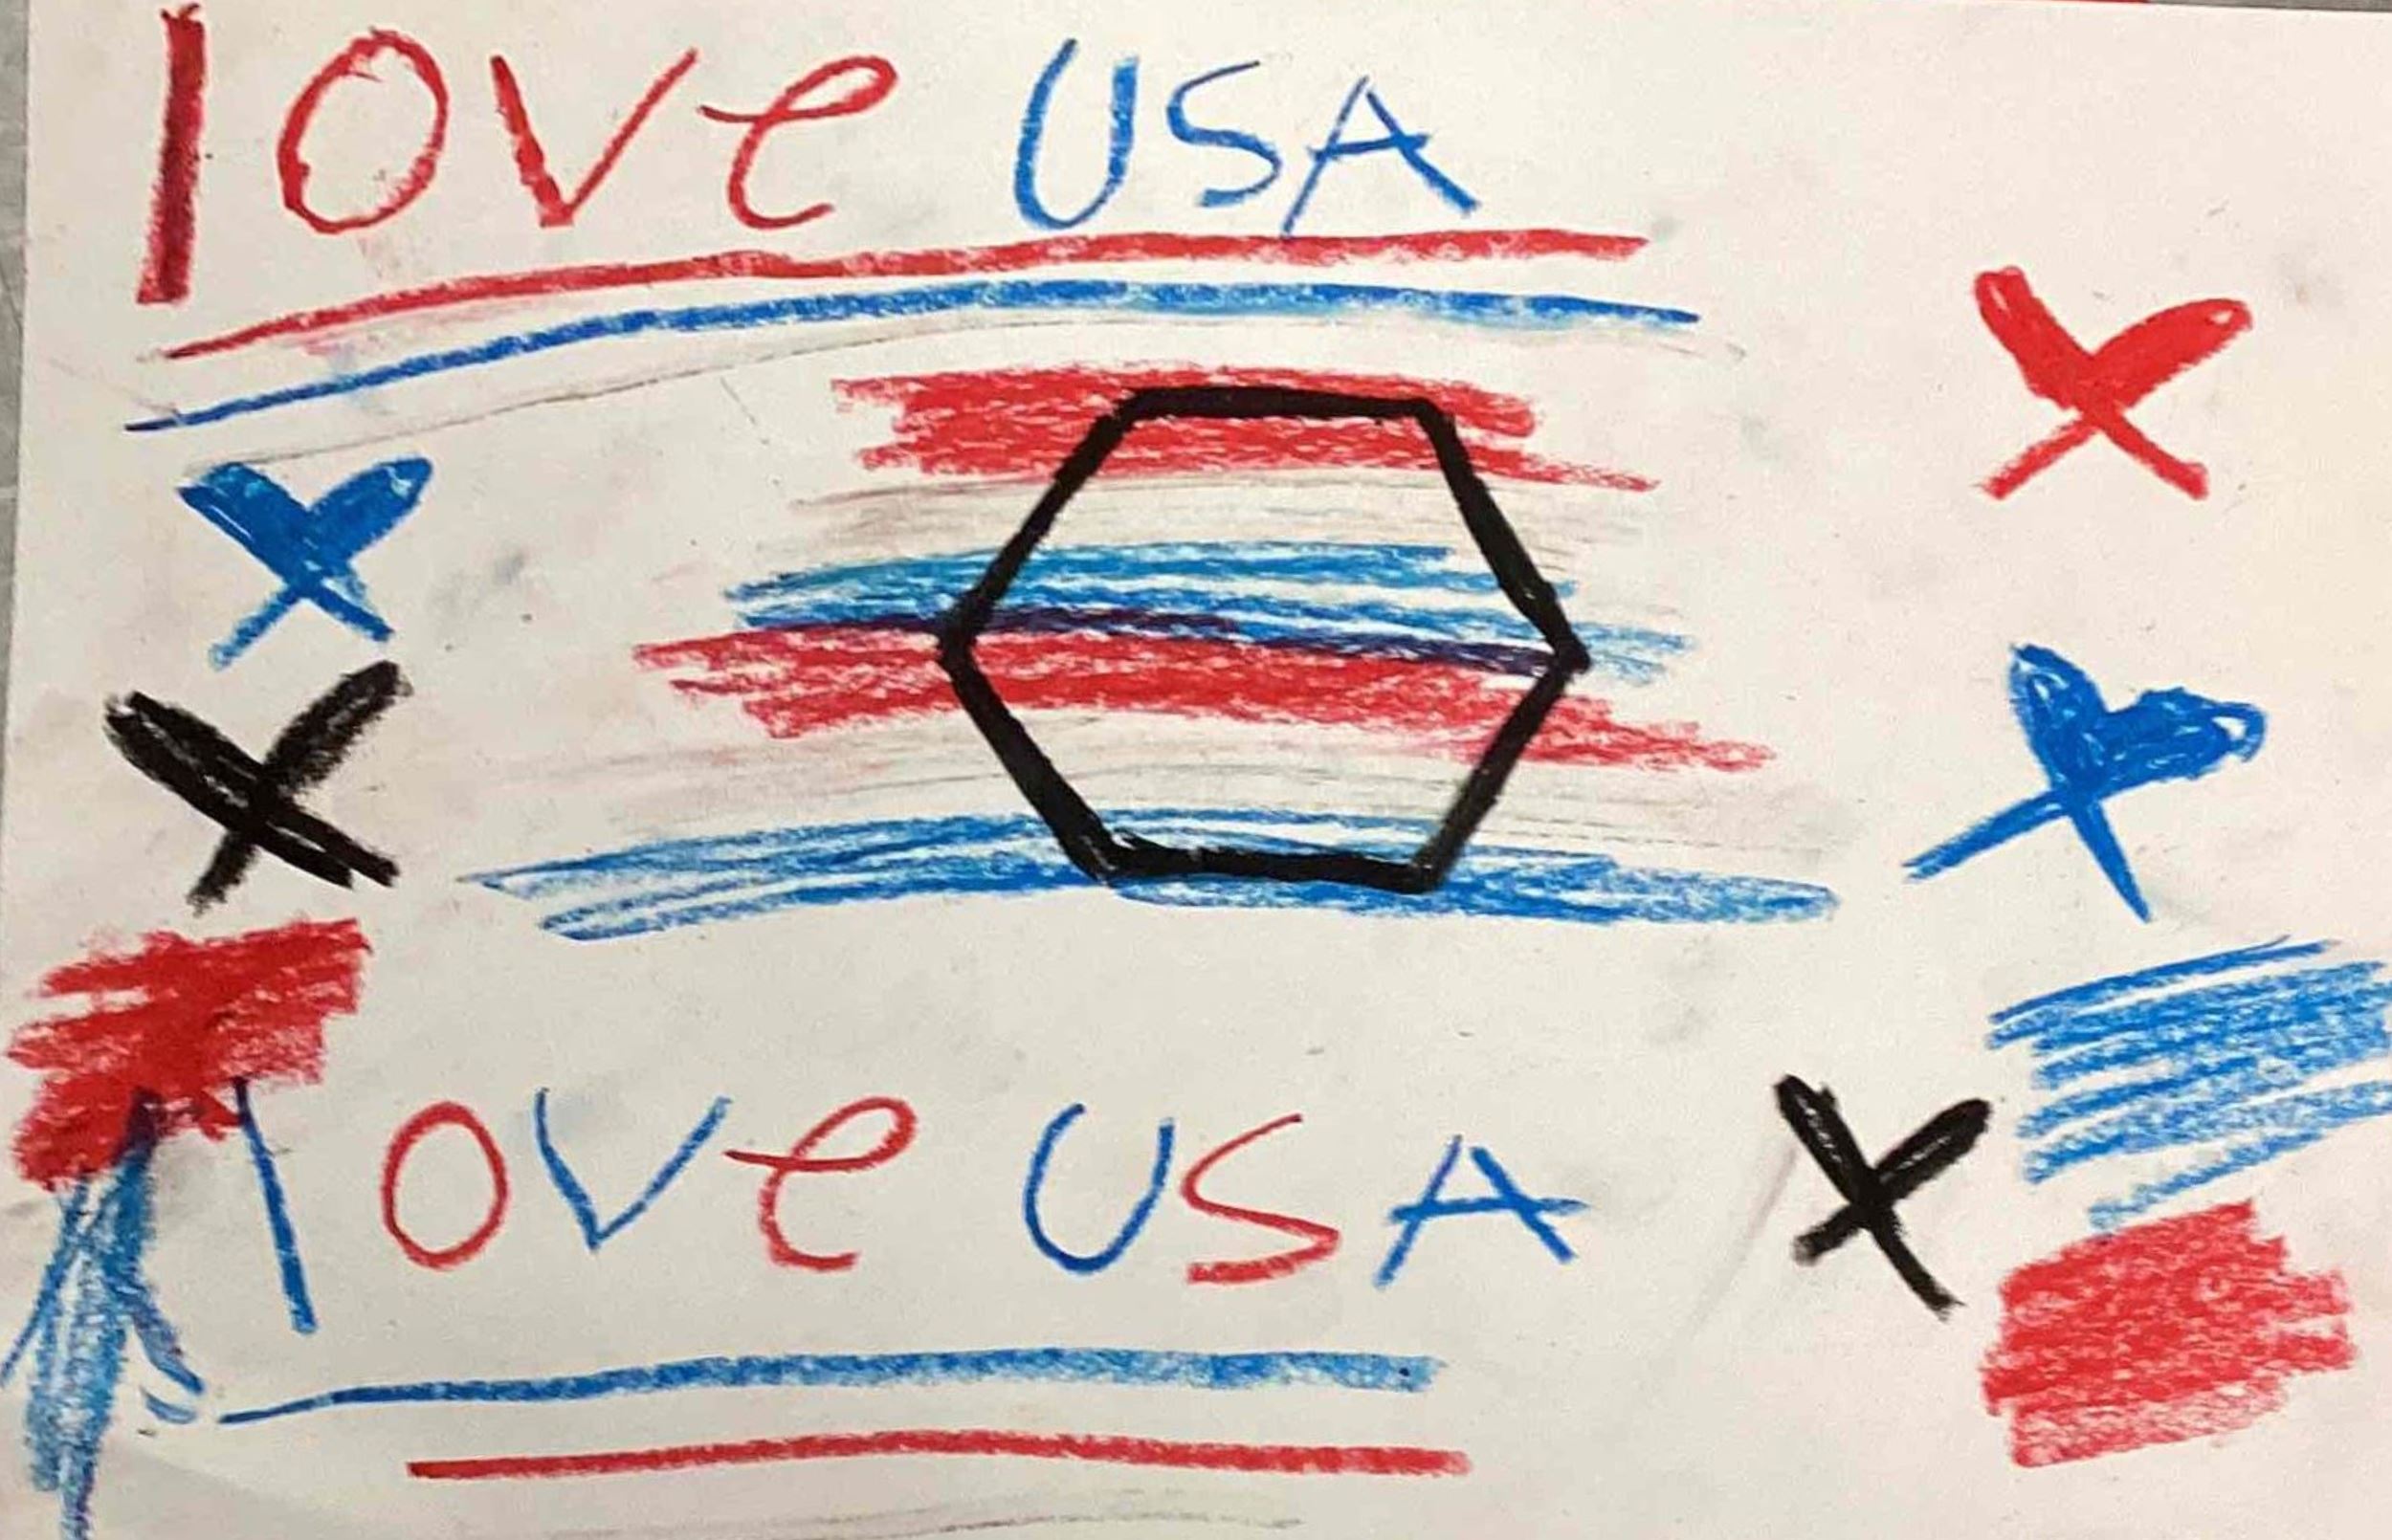 love USA
love USA